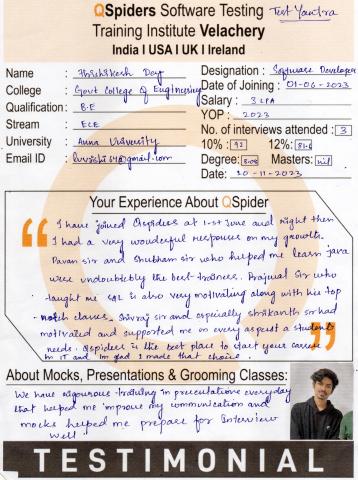 QSpiders Software Testing Test Yantra
Training Institute Velachery
India I USA I UK I Ireland
Name : Hrishikesh Dey
Designation : Software Developer
College : Govt College of Engineering
Date of Joining : 01-06-2023
Qualification : B.E
Salary : 3 LPA
YOP : 2023
Stream : ECE
No. of interviews attended : 3
University : Anna University
10% : 92 12% : 81.6
Email ID :
Degree: Masters: Nil
Date: 30-11-2023
Your Experience About QSpider
I have joined Qspiders at 1st June and right then
I had a very wonderful responses on my growth.
Pavan sir and Shubham sir who helped me learn java
were undoubtebly the best trainers. Prajwal Sir who
taught me SQL is also very motivating along with his top
notch classes. Shivraj sir and especially shrikanth sir had
motivated and supported me on every aspect a student
needs. Qspiders is the best place to start your career
in IT and Im glad I made that choice.
About Mocks, Presentations & Grooming Classes:
We have rigourous training in presentations everyday
that helped me improve my communication and
mocks helped me prepare for Interview
well.
TESTIMONIAL